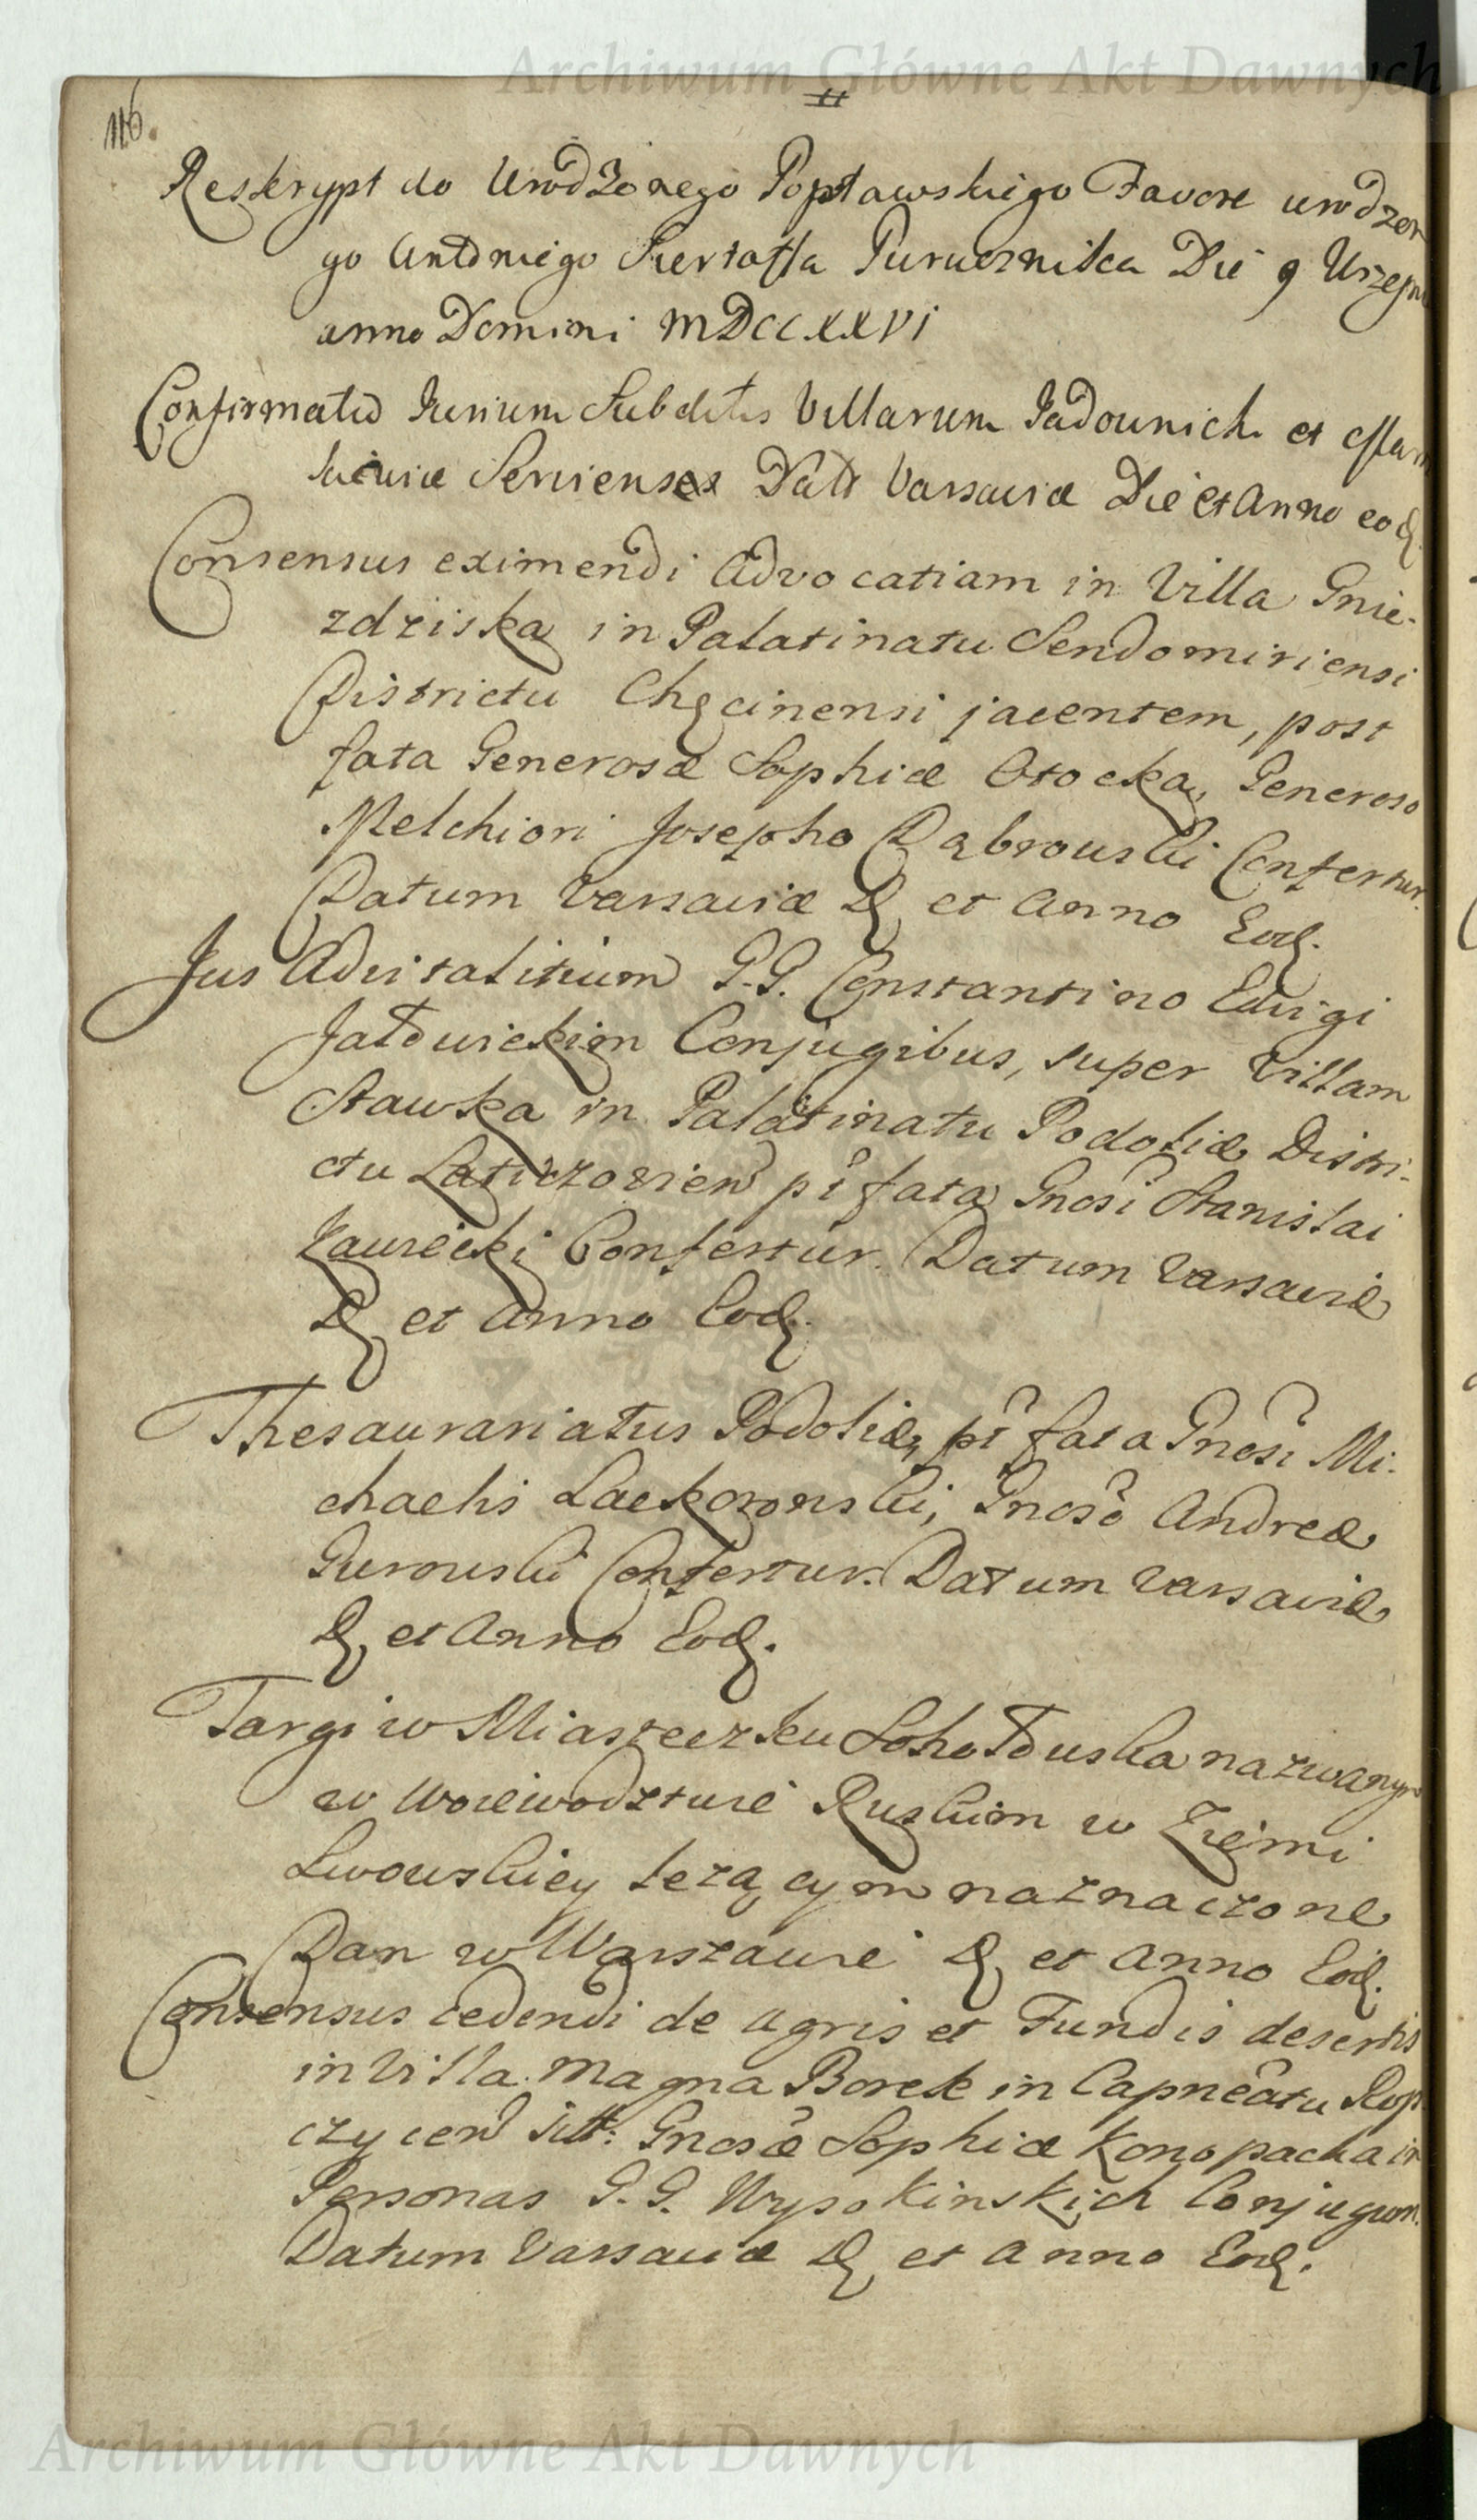 Archiwum Główne Akt Dawnych
116.
Reskrypt do Urodzonego Popławskiego Favore urodzon
go Antoniego Purucznika Die 9 Wrzeń
anno Domini MDCCXXVI
Confirmatio Jurium Subditis Villarum Jadounich et
Servienses Datt Varsaviæ Die et Anno eod
Consensus eximendi Advocatiam in Villa Gnie-
zdziska in Palatinatu Sendomiriensi
Districtu Chęcinensi jacentem, post
fata Generosæ Sophiæ Otocka, Generoso
Melchiori Josepho Dąbrowski Confertur.
Datum Varsaviæ D et Anno Eod.
Jus Advitalitium G.G. Constantino Edvigi
Jałowickim Conjugibus, super Villam
Stawka in Palatinatu Podoliæ Distri-
ctu Latyczovien pt fata Gnosi Stanislai
Zawiecki Confertur. Datum Varsaviæ
D et Anno Eod.
Thesaurariatus Podoliæ, pt fata Gnosi Mi-
chaelis Lackoronski, Gnoso Andreæ
Gurowski Confertur. Datum Varsaviæ
D, et Anno Eod.
Targi w Miasteczku nazwanym
w Woiewodztwie Ruskim w Ziemi
Lwowskiey leżącym naznaczone
Dan w Warszawie D, et Anno Eod.
Consensus cedendi de agris et Fundis desertis
in Villa Magna Borek in Capneatu Rop
czycen sitt: Gnosæ Sophiæ Konopacka in
Personas G.G. Wysokinskich Conjugum.
Datum Varsaviæ D, et Anno Eod.
Archiwum Główne Akt Dawnych